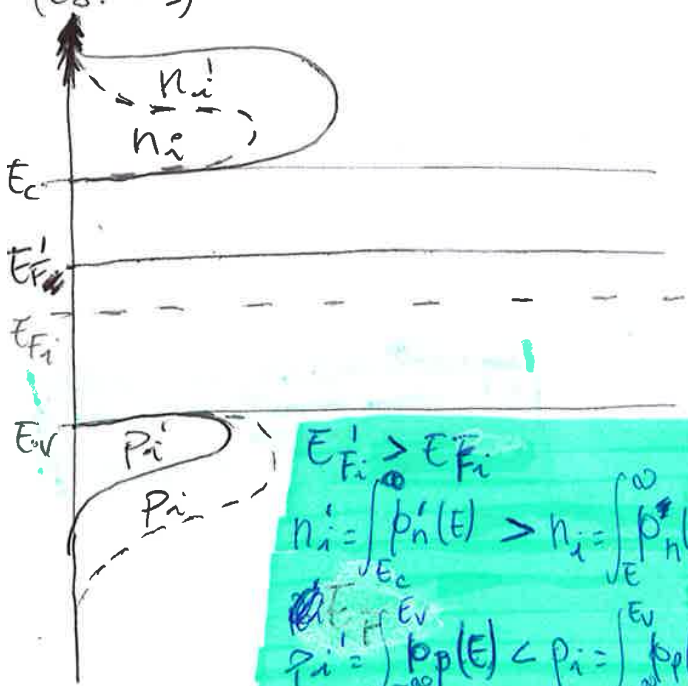 n_i'
n_i
E_c
E_F'
E_{F_i}
E_V
p_i'
p_i
E'_{F_i} > E_{F_i}
n_i' = ∫_{E_c} p_n'(E) > n_i = ∫_E^∞ p_n(
p_i' = ∫_{-∞}^{E_V} p_p(E) < p_i = ∫_{-∞}^{E_V} p_p(